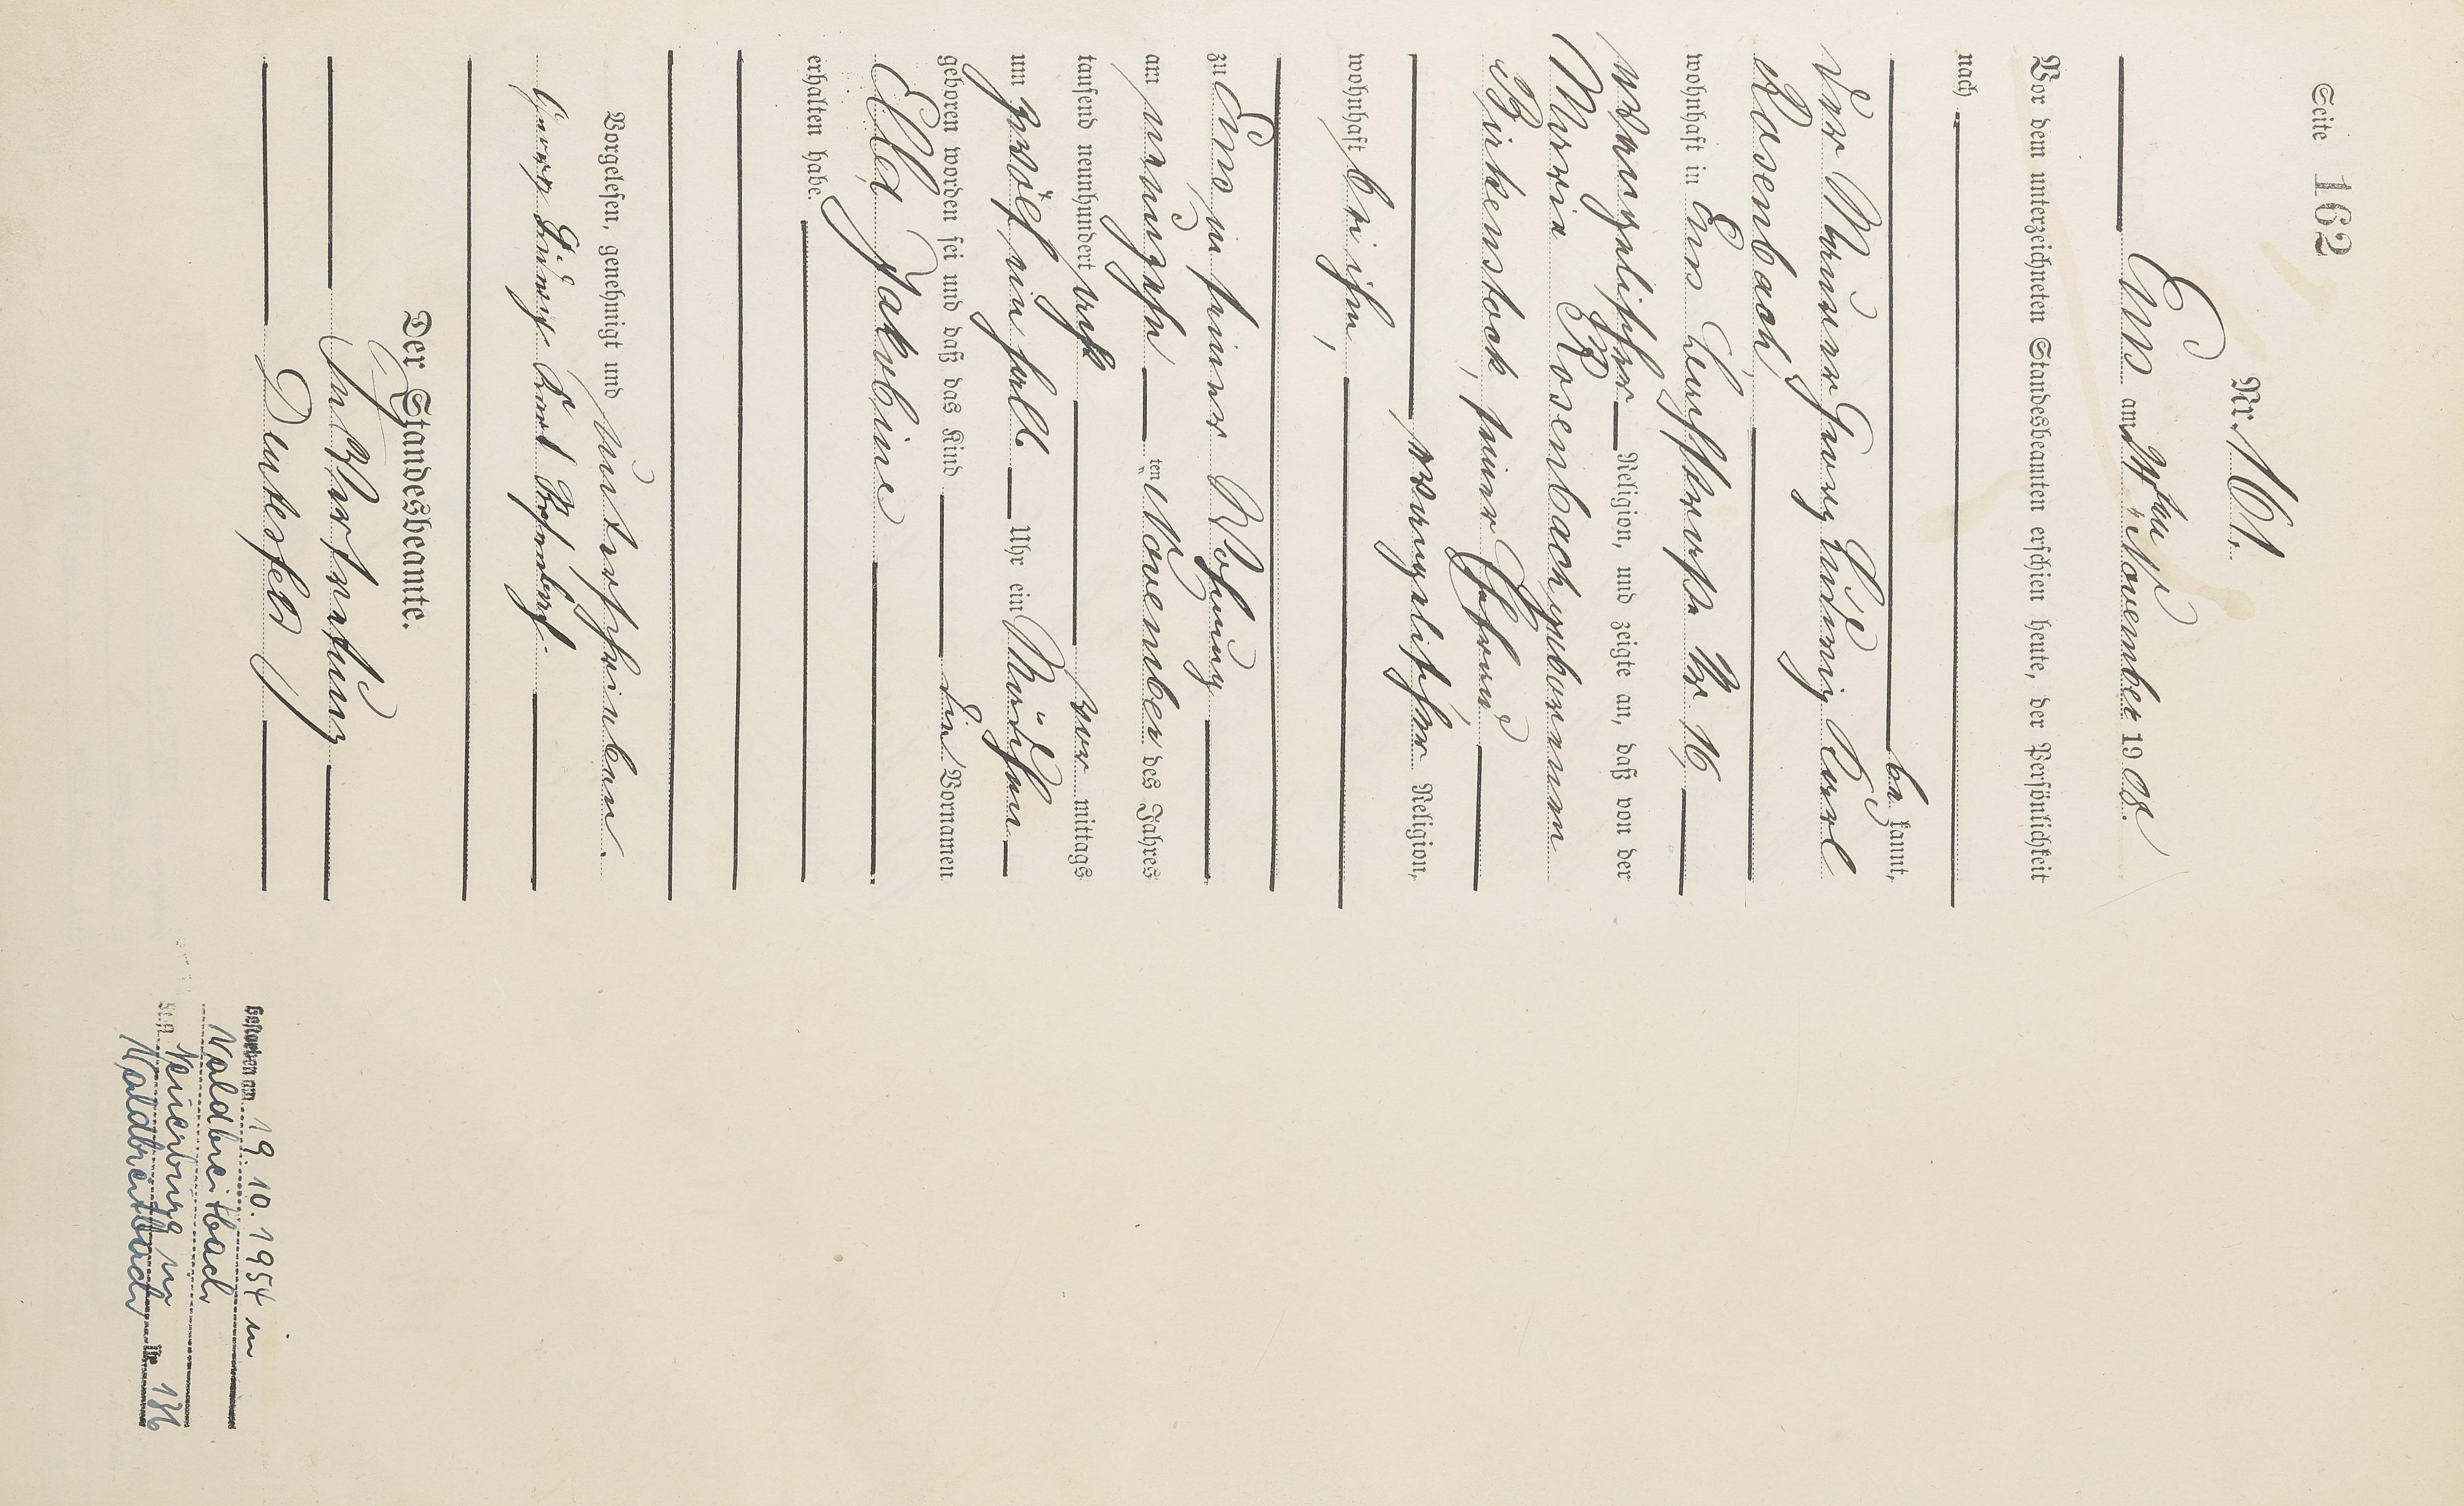 Seite 162
Nr. 161.
Ems am 24ten November 1908.
Vor dem unterzeichneten Standesbeamten erschien heute, der Persönlichkeit
nach
be kannt,
der Maurer Georg Ludwig Karl
Rosenbach,
wohnhaft in Ems Lahnstraße Nr 16,
evangelischer Religion, und zeigte an, daß von der
Maria Rosenbach geborenen
Birkenstock, seiner Ehefrau
evangelischer Religion,
wohnhaft bei ihm,
zu Ems in seiner Wohnung
am neunzehn ten November des Jahres
tausend neunhundert acht vor mittags
um zwölf ein halb Uhr ein Mädchen
geboren worden sei und daß das Kind die Vornamen
Ella Jakobine
erhalten habe.
Vorgelesen, genehmigt und unterschrieben.
Georg Ludwig Karl Rosenbach.
Der Standesbeamte.
In Vertretung
Dutesfeld
Gestorben am 19.10.1954 in
Waldbreitbach
Neuerburg in
Waldbreitbach Nr. 136